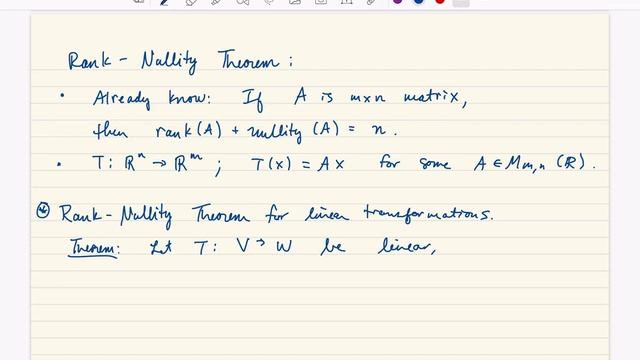 Rank - Nullity Theorem :
• Already know: If A is m×n matrix,
then rank(A) + nullity (A) = n.
• T: ℝⁿ → ℝᵐ ; T(x) = Ax for some A ∈ Mm,n (ℝ).
Rank - Nullity Theorem for linear transformations.
Theorem: Let T: V → W be linear,